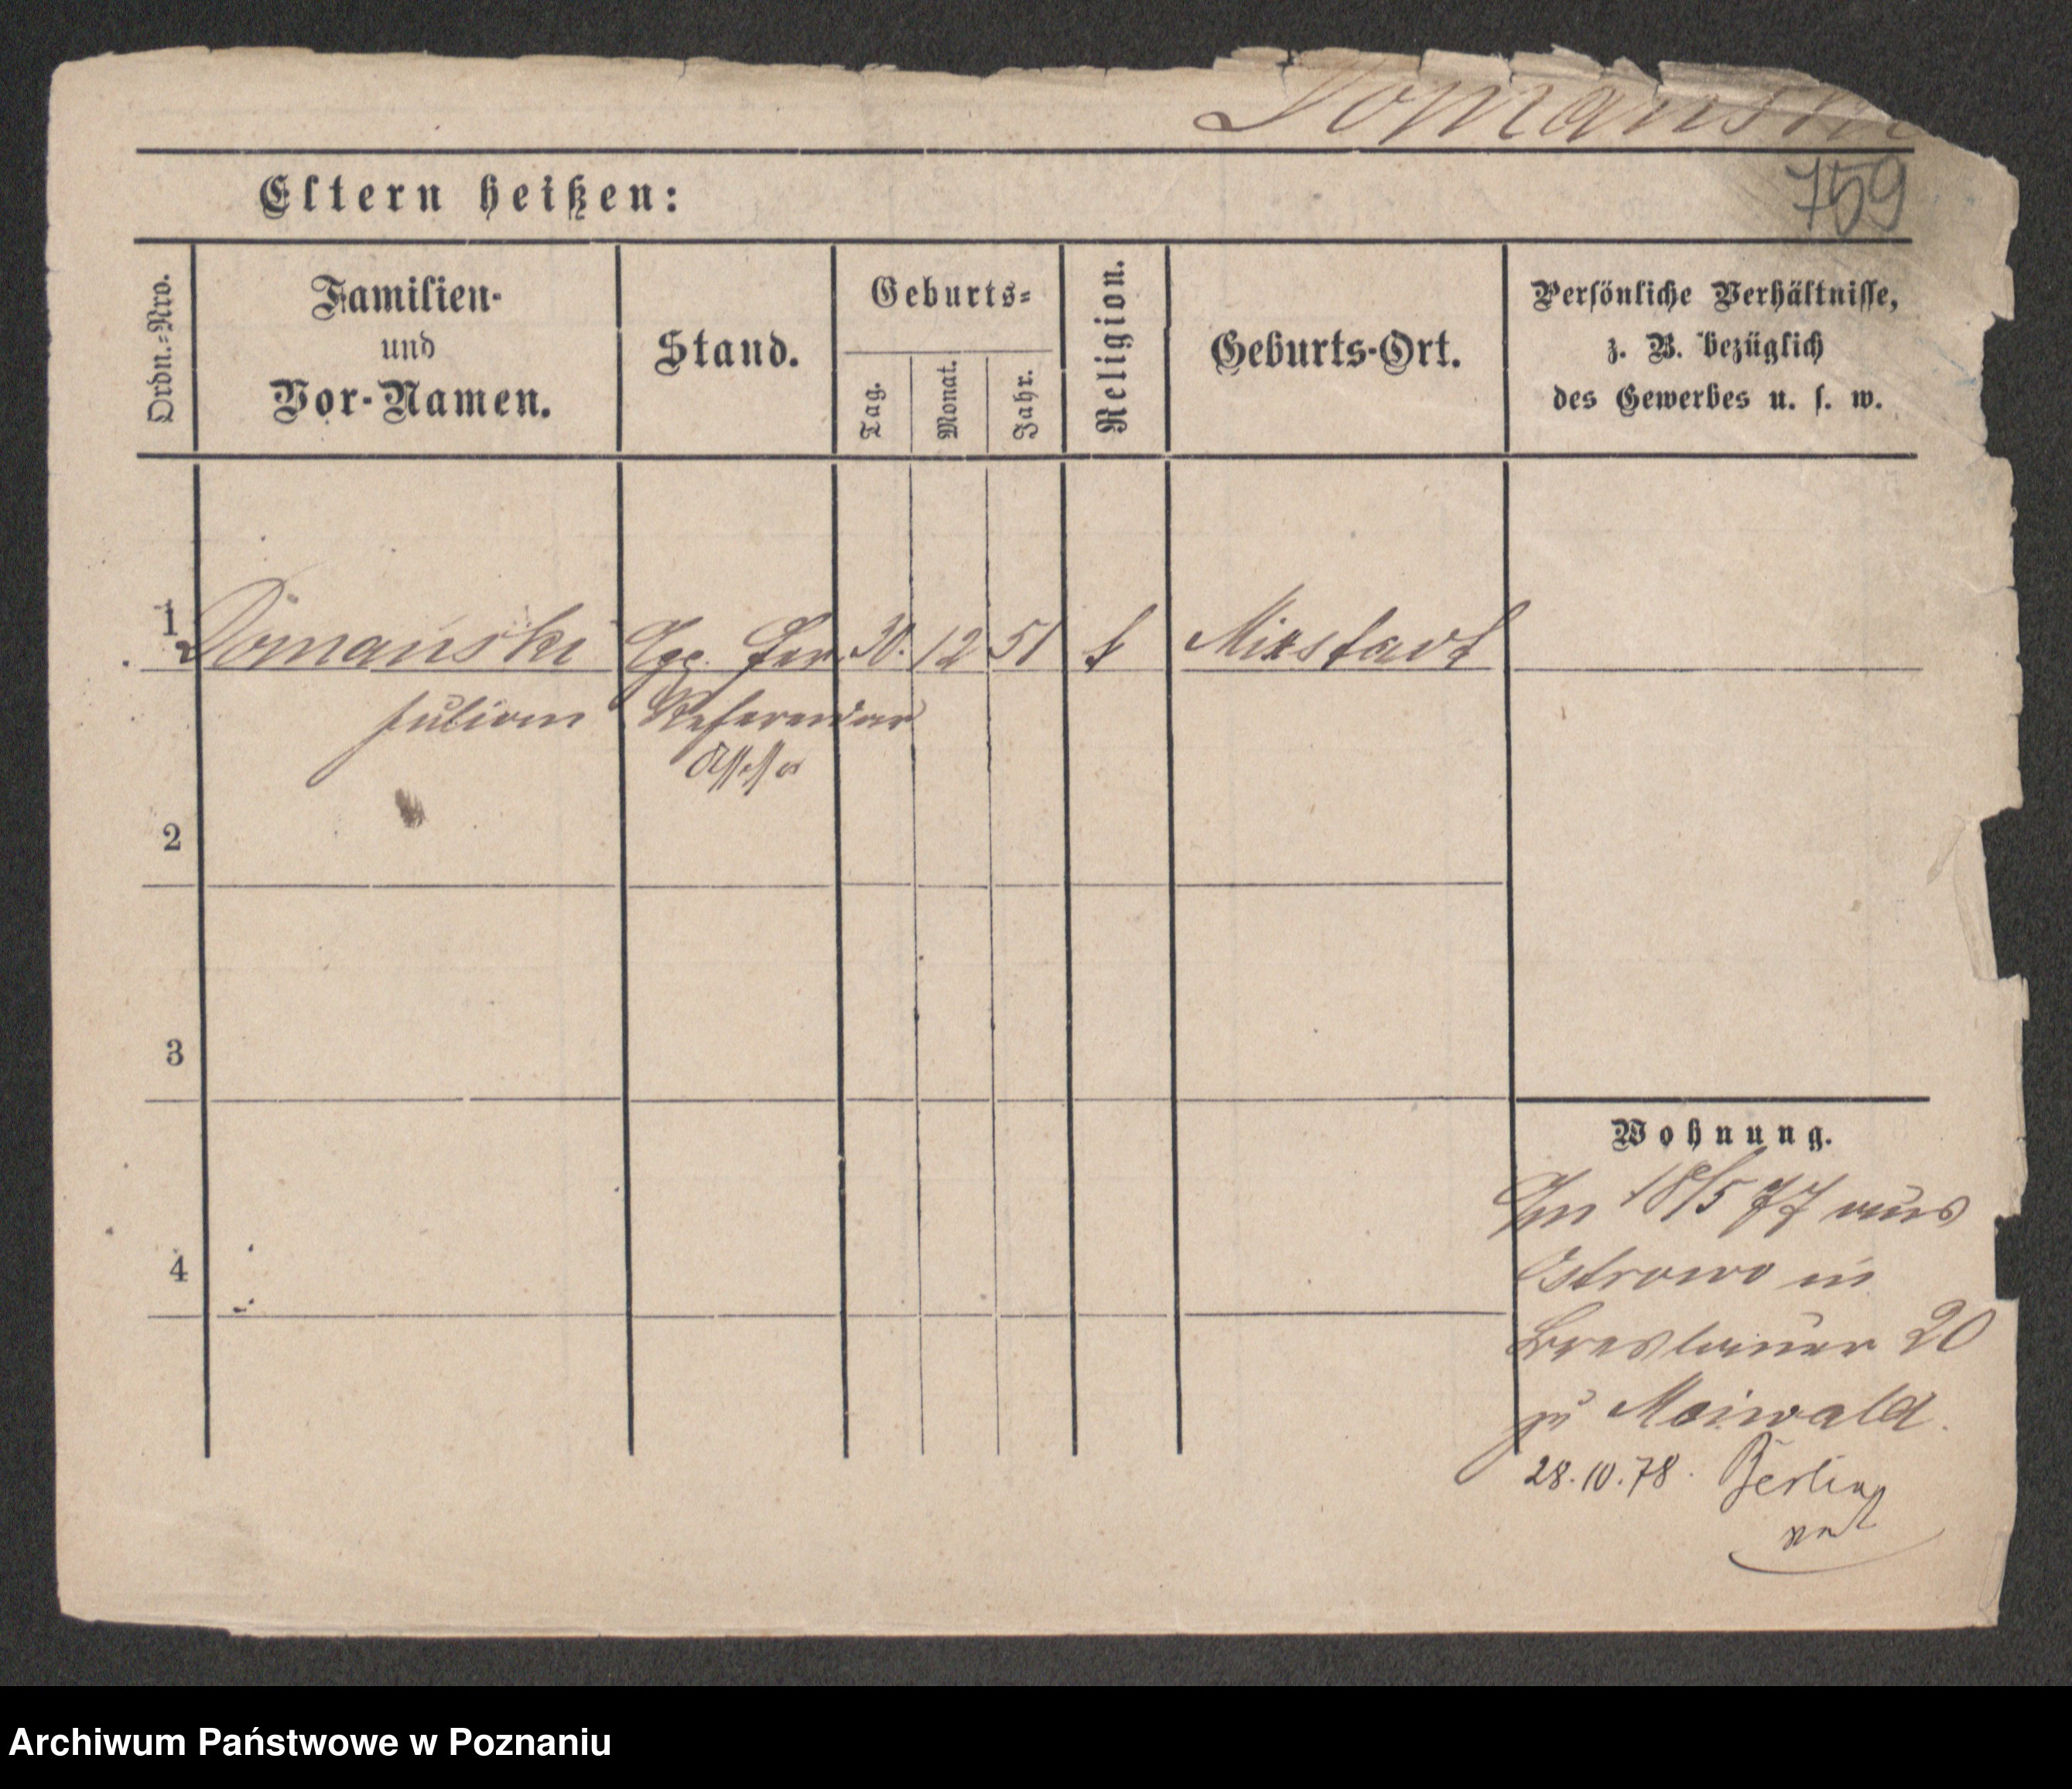 Domanski
759
Eltern heißen:
Ordn.-Nro.
Familien-
und
Vor-Namen.
Stand.
Geburts-
Tag.
Monat.
Jahr.
Religion.
Geburts-Ort.
Persönliche Verhältnisse,
z. B. bezüglich
des Gewerbes u. s. w.
1 Domański 30. 12 51 k Mixstadt
Julian Referendar
Assessor
2
3
4
Wohnung.
Im 18/5 77 aus
Ostrowo in
Breslauer 20
zu Maiwald.
28.10.78. Berlin